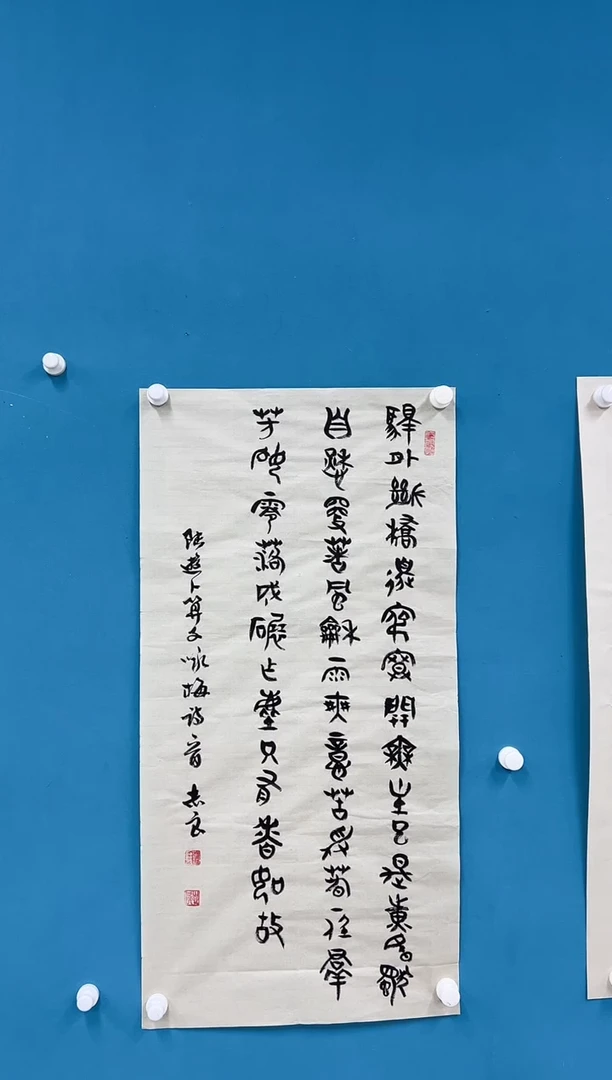 驛外斷橋邊寂寞開無主已是黃昏獨
自愁更著風龢雨無意苦爭春一任羣
芳妒零落成碾乍塵只有香如故
陸遊卜算子咏梅詩一首 志良